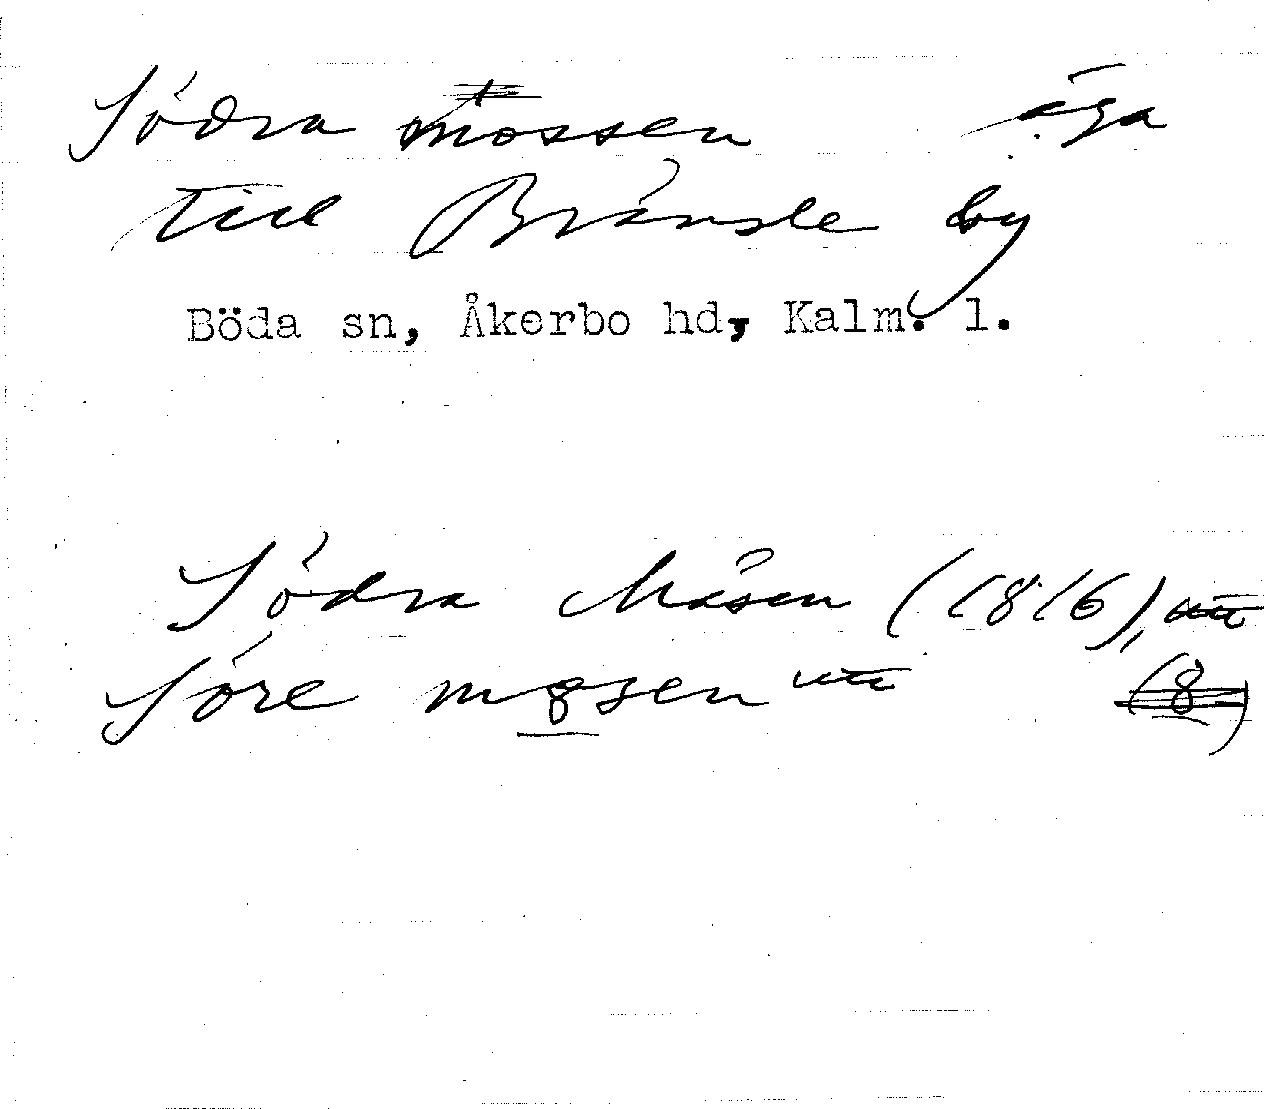 Södra mossen äga
till Brämsle by
Böda sn, Åkerbo hd, Kalm. l.
Södra Måsen (1816),
Söre mosen